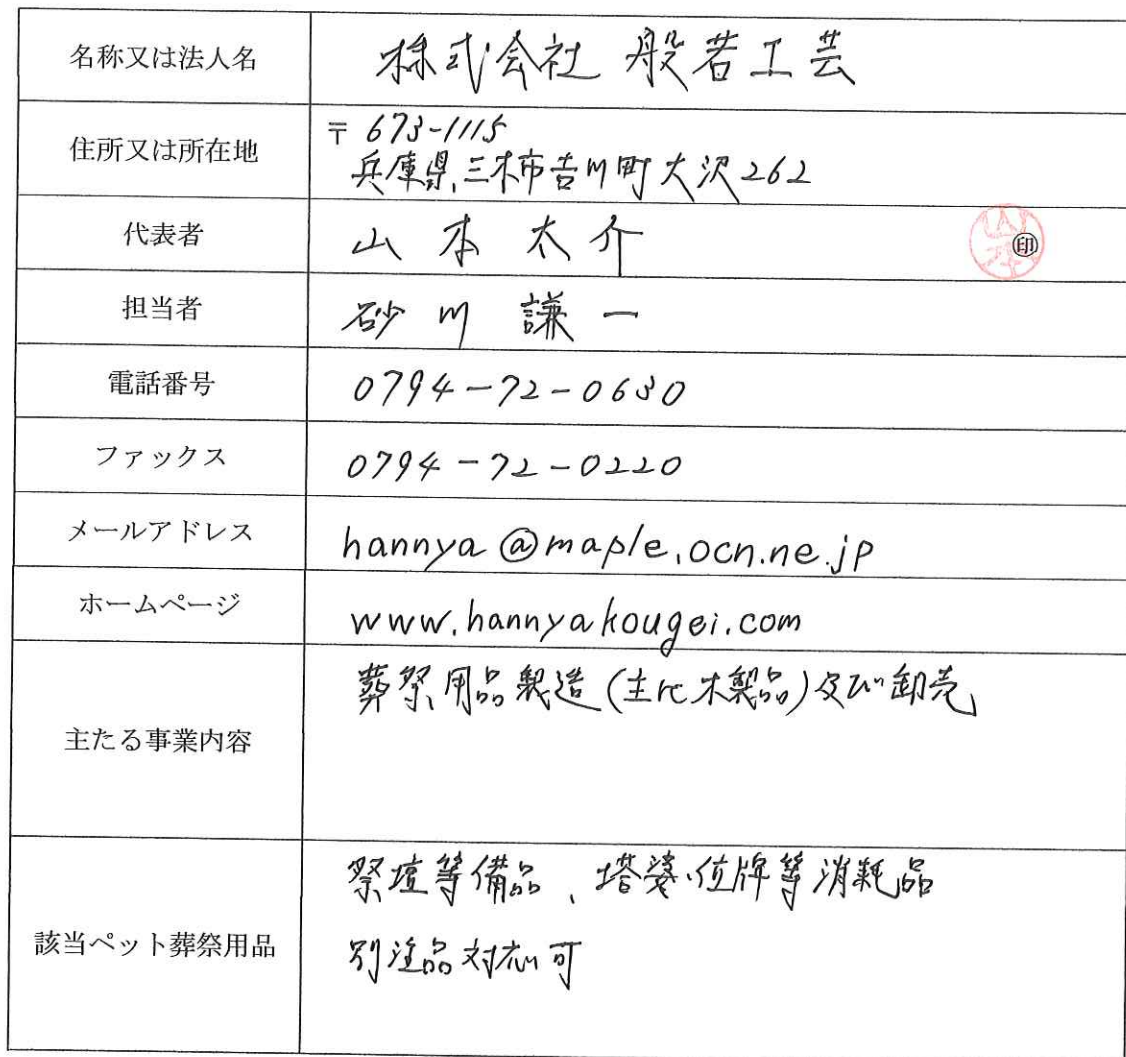 名称又は法人名
株式会社 般若工芸
住所又は所在地
〒673-1115
兵庫県三木市吉川町大沢262
代表者
山本太介
印
担当者
砂川謙一
電話番号
0794-72-0630
ファックス
0794-72-0220
メールアドレス
hannya@maple.ocn.ne.jp
ホームページ
www.hannyakougei.com
主たる事業内容
葬祭用品製造(主に木製品)及び卸売
該当ペット葬祭用品
祭壇等備品、塔婆、位牌等消耗品
別注品対応可